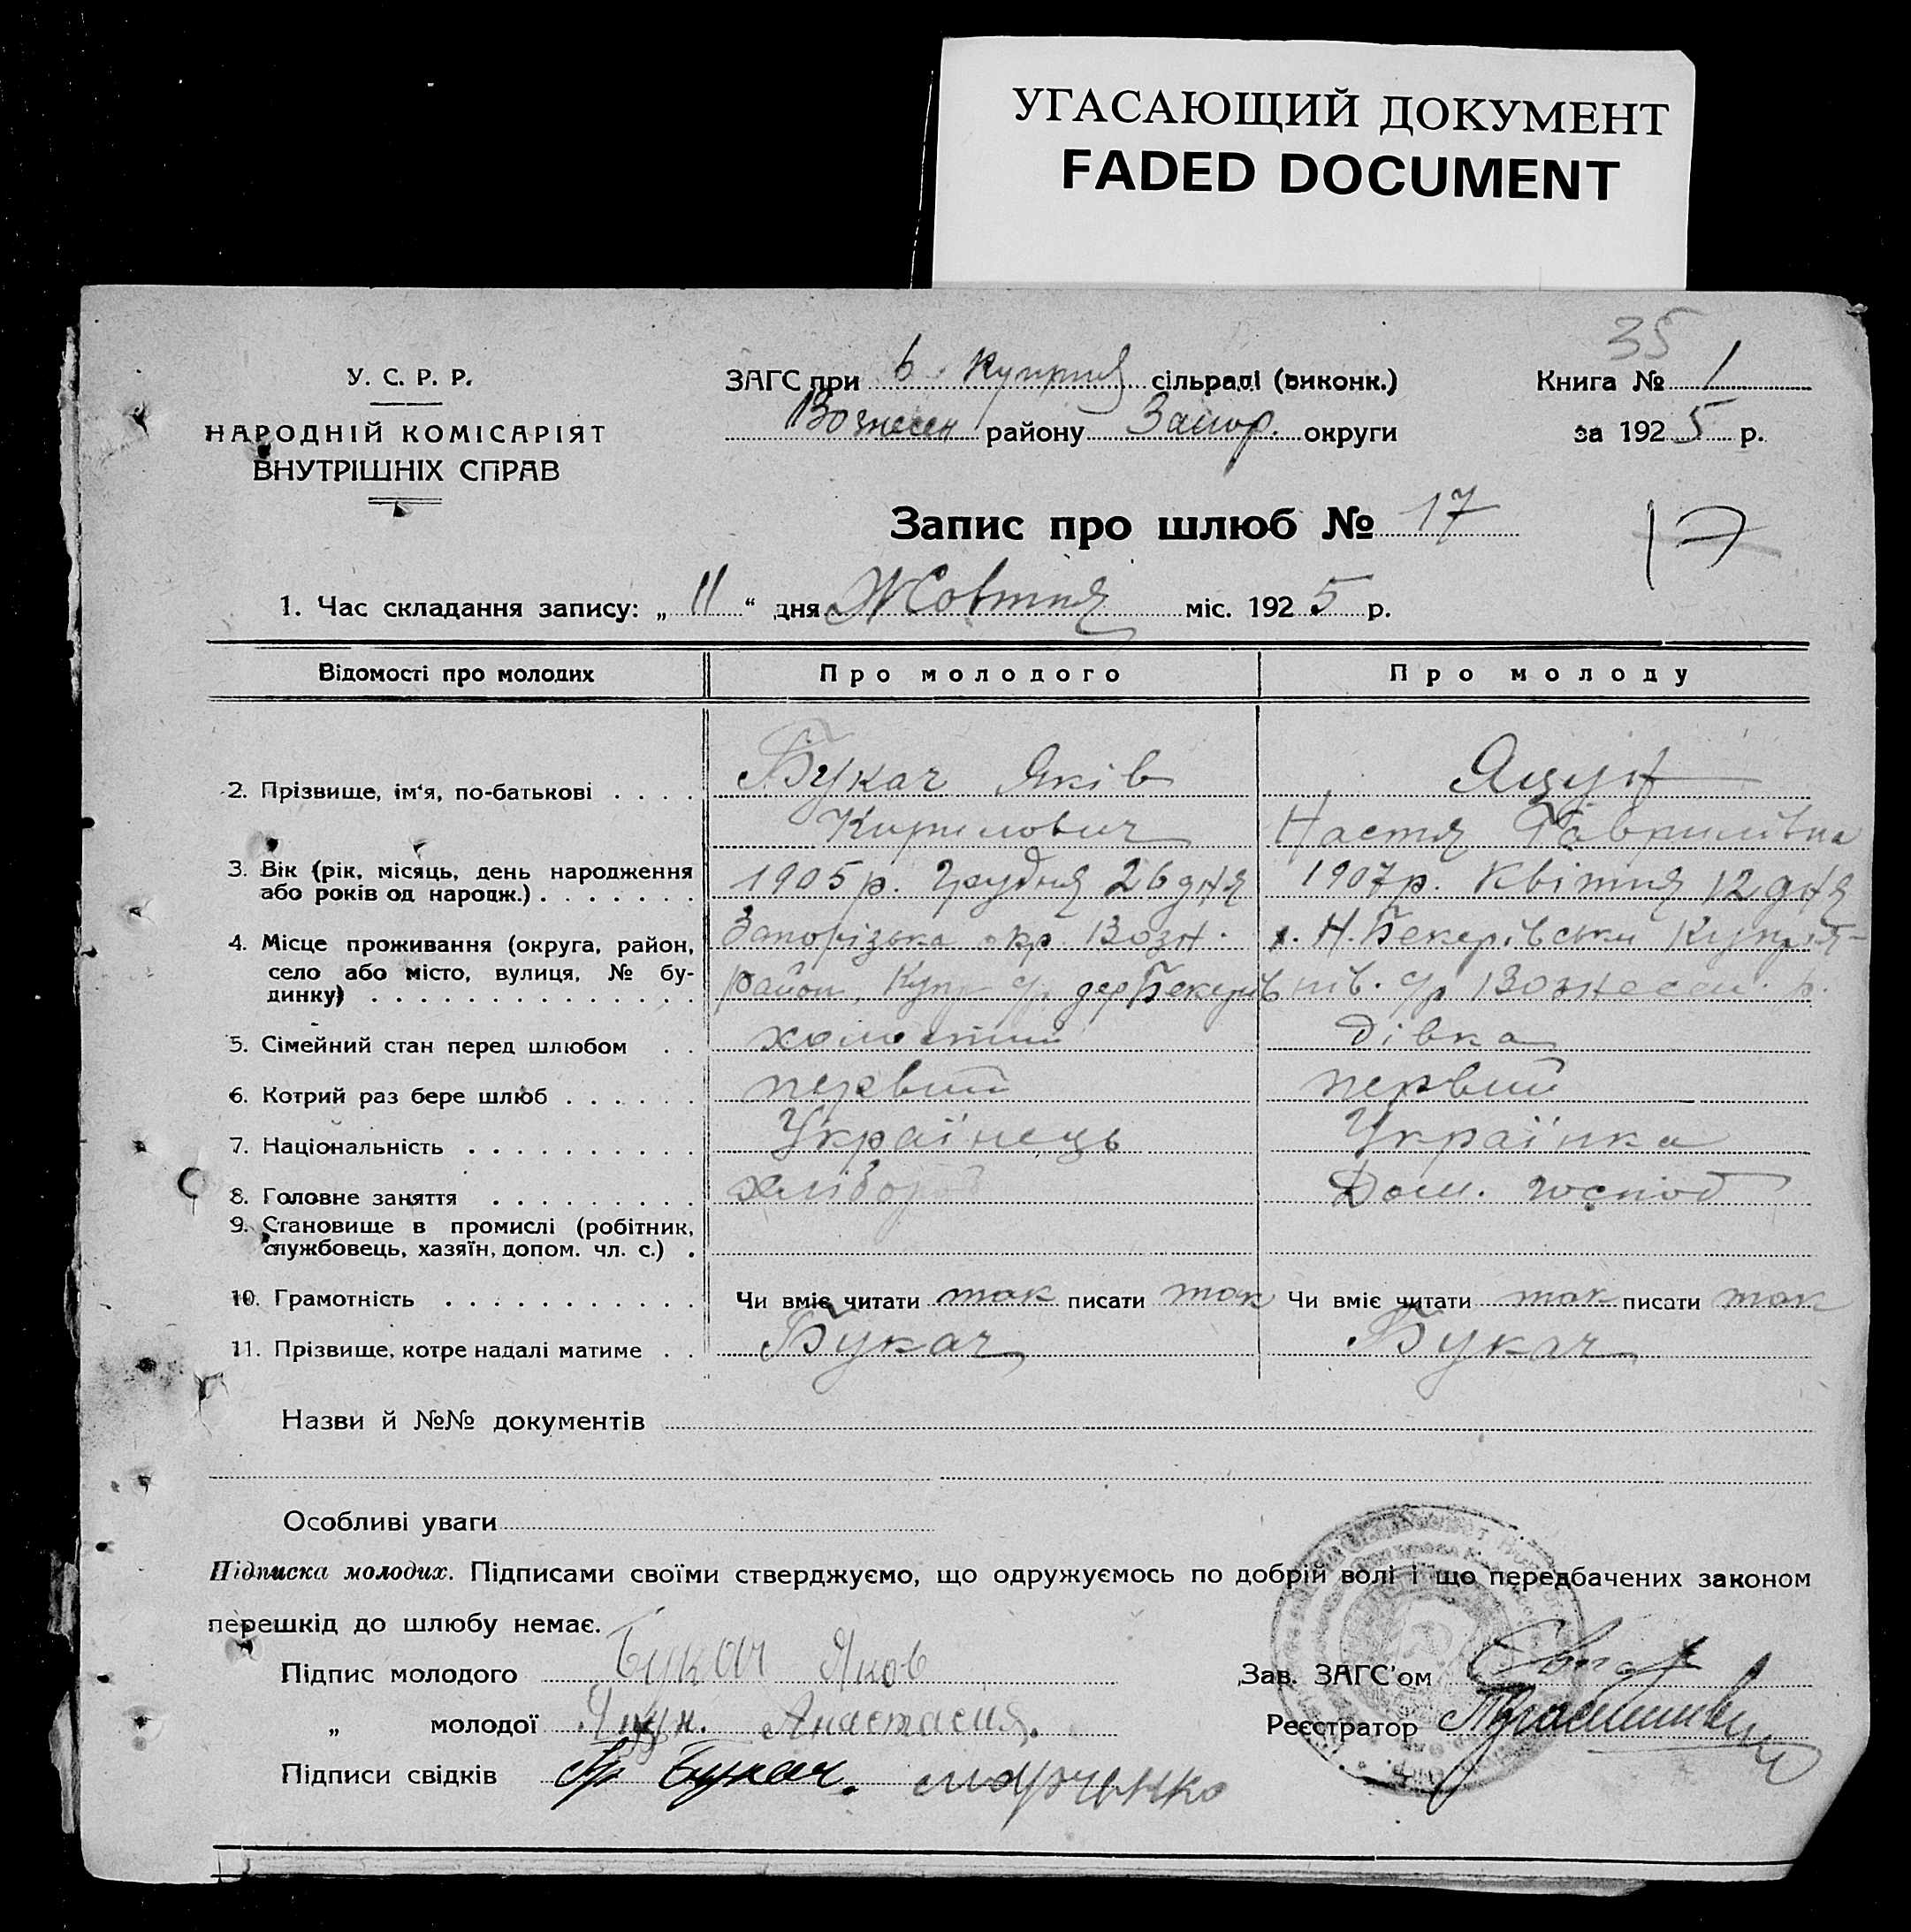 УГАСАЮЩИЙ ДОКУМЕНТ
FADED DOCUMENT
35
У. С. Р. Р.
НАРОДНІЙ КОМІСАРІЯТ
ВНУТРІШНІХ СПРАВ
ЗАГС при сільраді (виконк.)
Вознесен району Запор. округи
Книга № 1
за 1925 р.
Запис про шлюб № 17
17
1. Час складання запису: „ 11 “ дня Жовтня міс. 1925 р.
Відомості про молодих Про молодого Про молоду
2. Прізвище, ім'я, по-батькові . . . . Букач Яків Яцун
Кирилович Настя Гаврилівна
3. Вік (рік, місяць, день народження або років од народж.) . . . . . . . 1905 р. Грудня 26 дня 1907 р. Квітня 12 дня
4. Місце проживання (округа, район, Запорізька окр. Возн. х. Н. Бекерівськи
село або місто, вулиця, № будинку) район, Купр с/р дер Бекерів с/р Вознесен. р.
5. Сімейний стан перед шлюбом . . холостий дівка
6. Котрий раз бере шлюб . . . . . . первий первий
7. Національність . . . . . . . . . . Українець Українка
8. Головне заняття . . . . . . . . . хлібороб Дом. господ
9. Становище в промислі (робітник, службовець, хазяїн, допом. чл. с.) .
10. Грамотність . . . . . . . . . . . Чи вміє читати так писати так Чи вміє читати так писати так
11. Прізвище, котре надалі матиме . . Букач Букач
Назви й №№ документів
Особливі уваги
Підписка молодих. Підписами своїми стверджуємо, що одружуємось по добрій волі і що передбачених законом
перешкід до шлюбу немає.
Підпис молодого Букач Яков
Зав. ЗАГС'ом
„ молодої Яцун. Анастасия.
Реєстратор
Підписи свідків Букач. Марченко